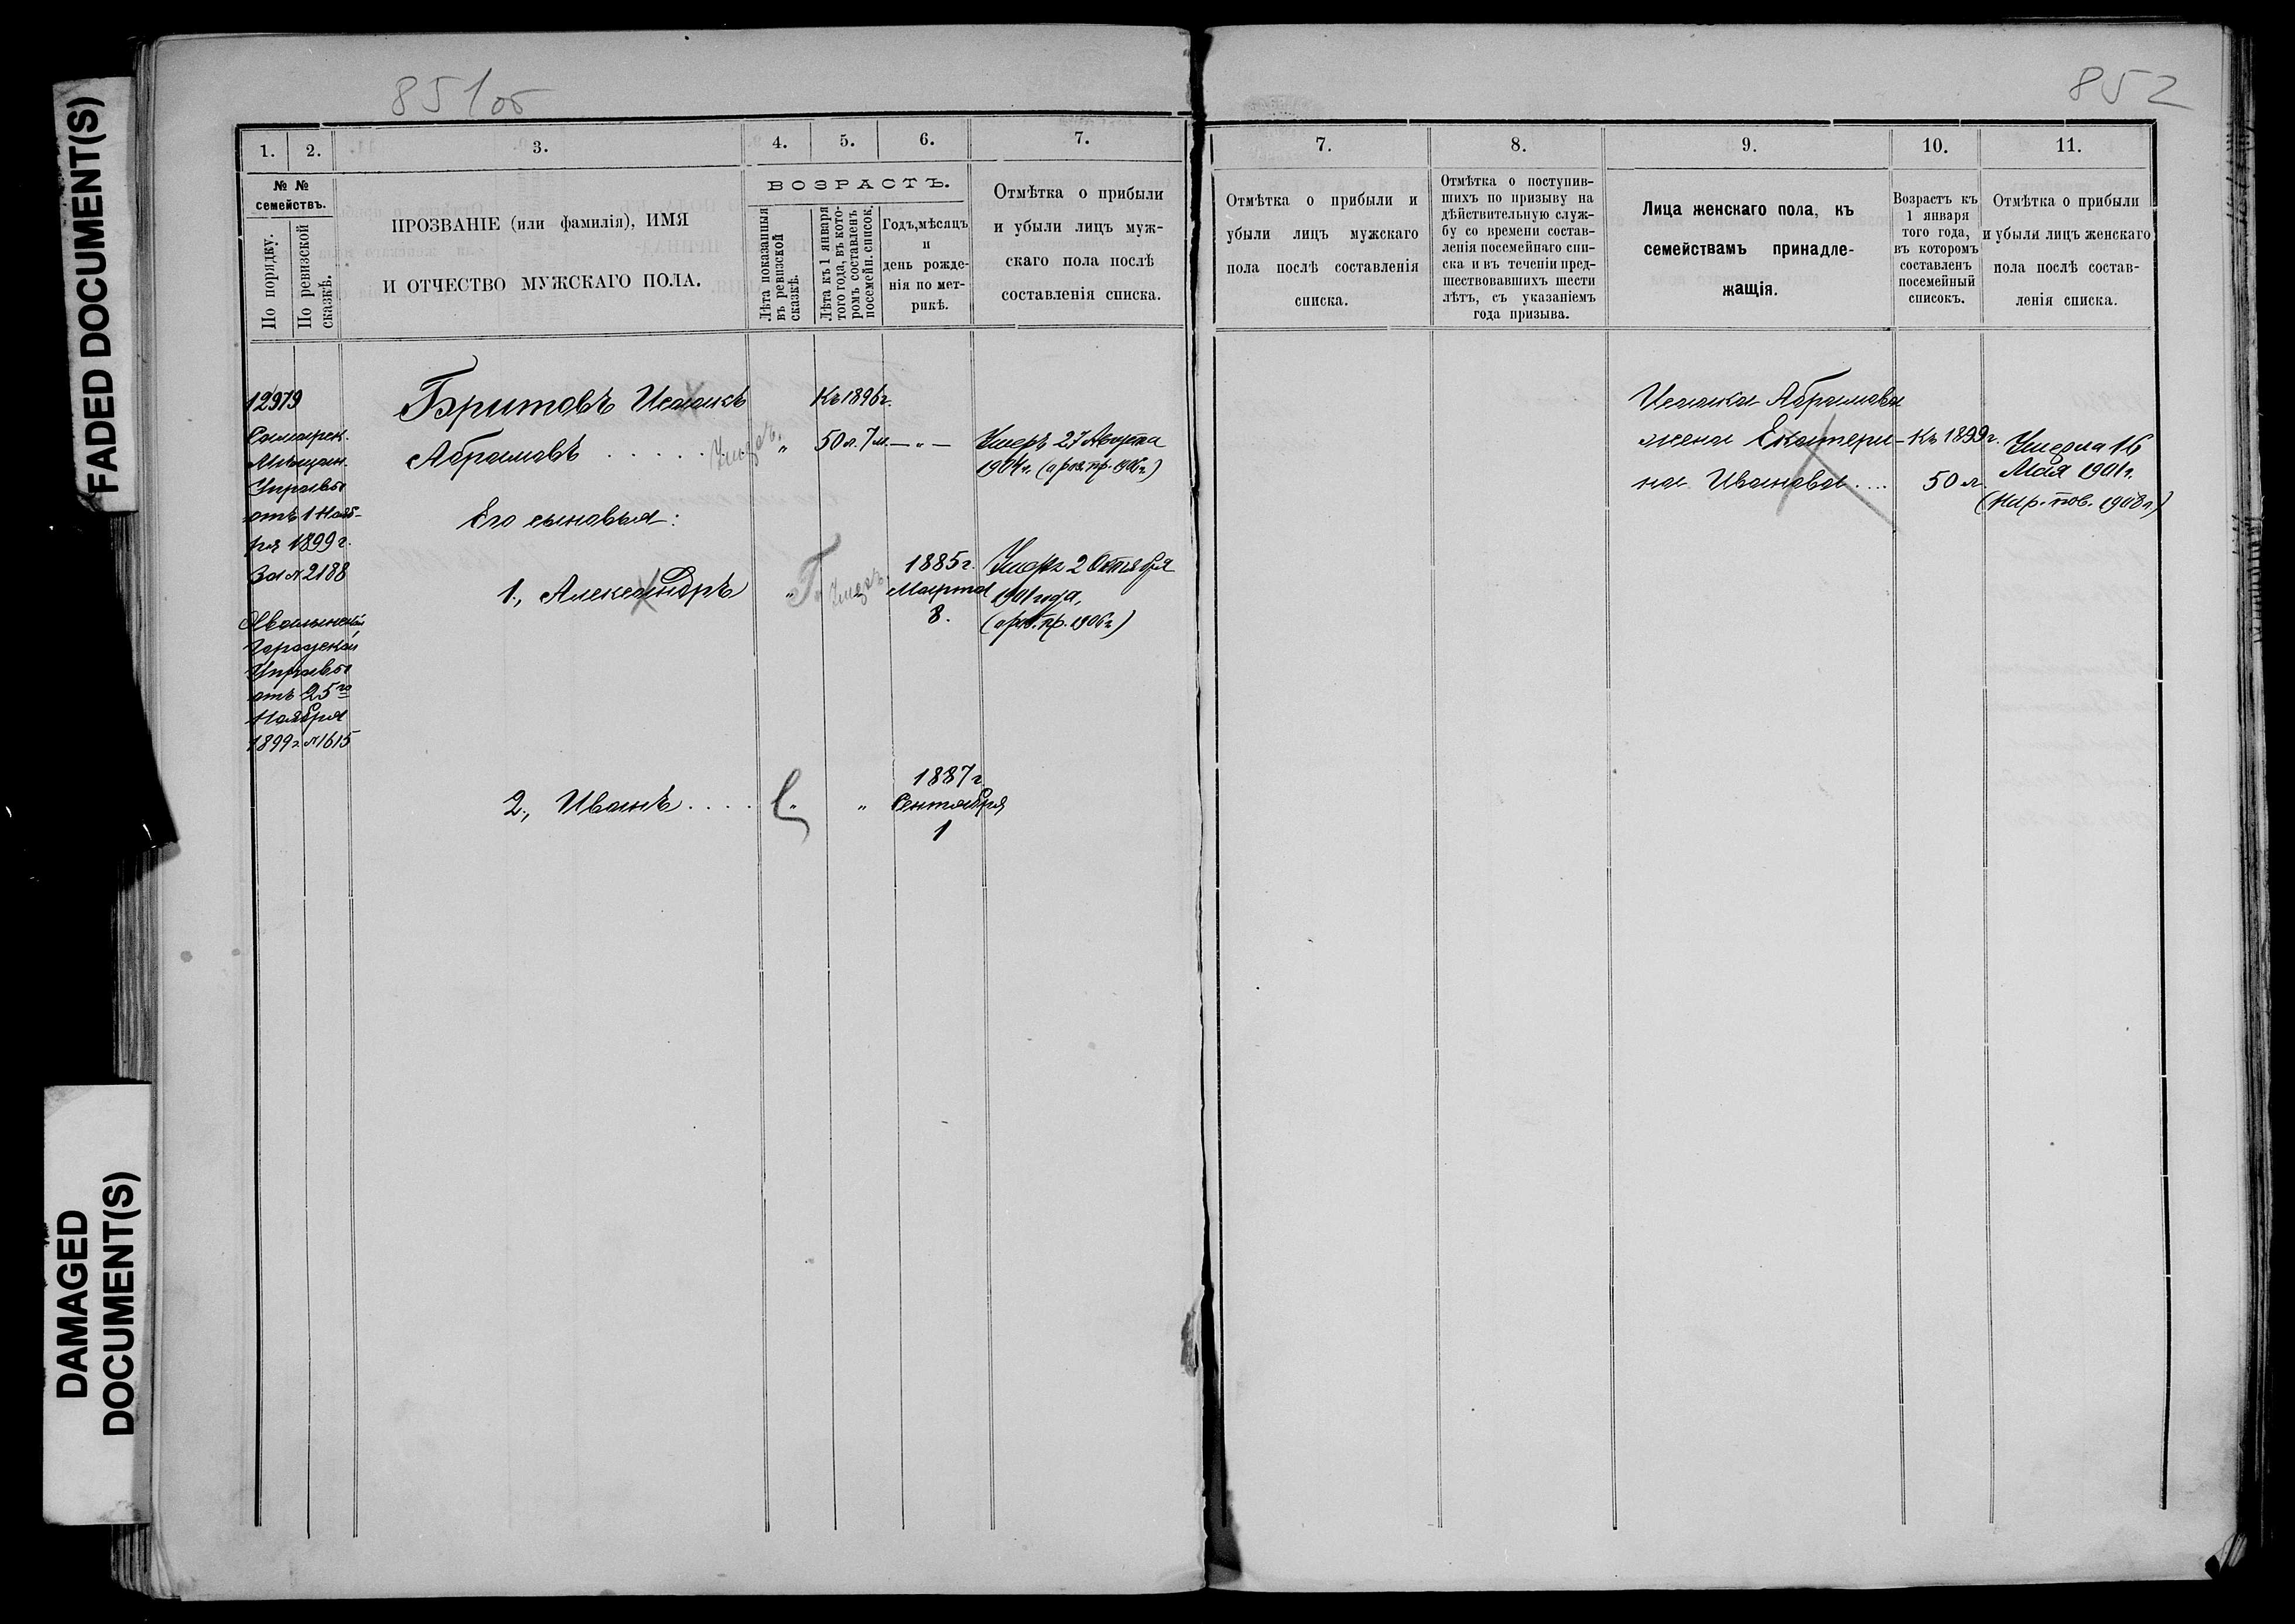 FADED DOCUMENT(S)
DAMAGED
DOCUMENT(S)
851об
1. 2. 3. 4. 5. 6. 7.
№ №
семействъ.
По порядку.
По ревизской
сказкѣ.
ПРОЗВАНІЕ (или фамилія), ИМЯ
И ОТЧЕСТВО МУЖСКАГО ПОЛА.
ВОЗРАСТЪ.
Лѣта показанныя
въ ревизской
сказкѣ.
Лѣта къ 1 января
того года, въ кото-
ромъ составленъ
посемейн. списокъ.
Годъ, мѣсяцъ
и
день рожде-
нія по мет-
рикѣ.
Отмѣтка о прибыли
и убыли лицъ муж-
скаго пола послѣ
составленія списка.
12979
Самарск.
Мѣщан.
Управы
отъ 1 Нояб-
ря 1899 г.
За № 2188
Хвалынской
Городской
Управы
отъ 25го
Ноября
1899 г. № 1615
Бритовъ Исаакъ
Абрамовъ . . . . . Умеръ. "
Къ 1896 г.
50 л. 7 м. — " —
Умеръ 27 Августа
1904 г.
Его сыновья:
1., Александръ " Умеръ. "
1885 г.
Марта
8.
Умеръ 2 Октября
1901 года,
2., Иванъ . . . . " "
1887 г.
Сентября
1
852
7. 8. 9. 10. 11.
Отмѣтка о прибыли и
убыли лицъ мужскаго
пола послѣ составленія
списка.
Отмѣтка о поступив-
шихъ по призыву на
дѣйствительную служ-
бу со времени состав-
ленія посемейнаго спи-
ска и въ теченіи пред-
шествовавшихъ шести
лѣтъ, съ указаніемъ
года призыва.
Лица женскаго пола, къ
семействамъ принадле-
жащія.
Возрастъ къ
1 января
того года,
въ которомъ
составленъ
посемейный
списокъ.
Отмѣтка о прибыли
и убыли лицъ женскаго
пола послѣ состав-
ленія списка.
Исаака Абрамова
жена Екатери-
на Иванова . . . .
Къ 1899 г.
50 л.
Умерла 16
Мая 1901 г.